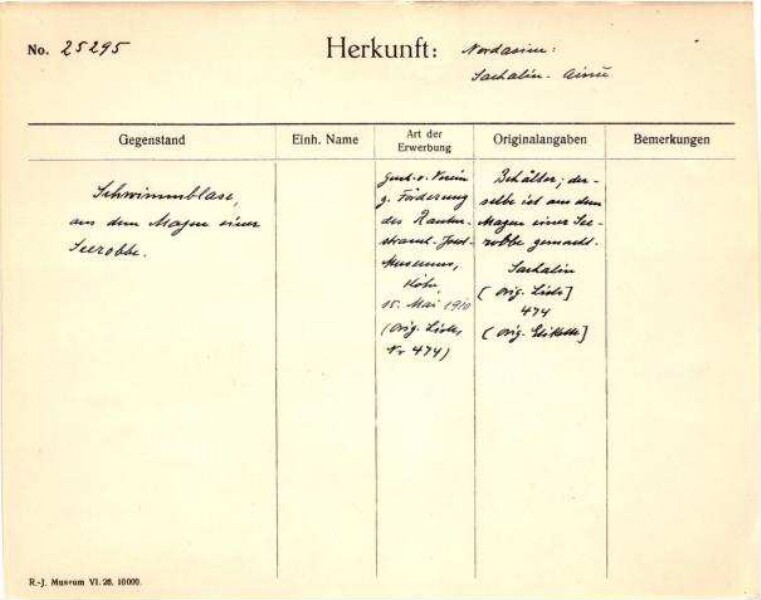 No. 25295
Herkunft: Nordasien:
Sachalin-Ainu
Gegenstand
Einh. Name
Art der Erwerbung
Originalangaben
Bemerkungen
Schwimmblase,
aus dem Magen einer
Seerobbe.
Gesch. v. Verein
z. Förderung
des Rauten-
strauch-Joest-
Museums,
Köln,
15. Mai 1910
(orig. Liste,
Nr 474)
Behälter; der-
selbe ist aus dem
Magen einer See-
robbe gemacht.
Sachalin
[orig. Liste]
474
[orig. Etikette]
R.-J. Museum VI. 26. 10000.